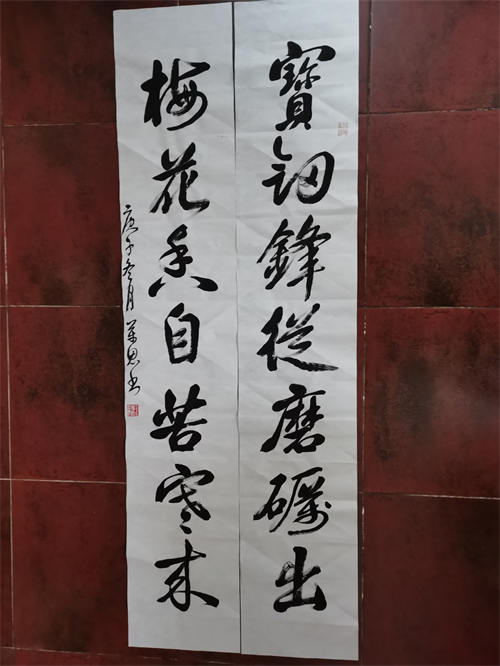 寶釼鋒從磨礪出
梅花香自苦寒来
庚子冬月 书